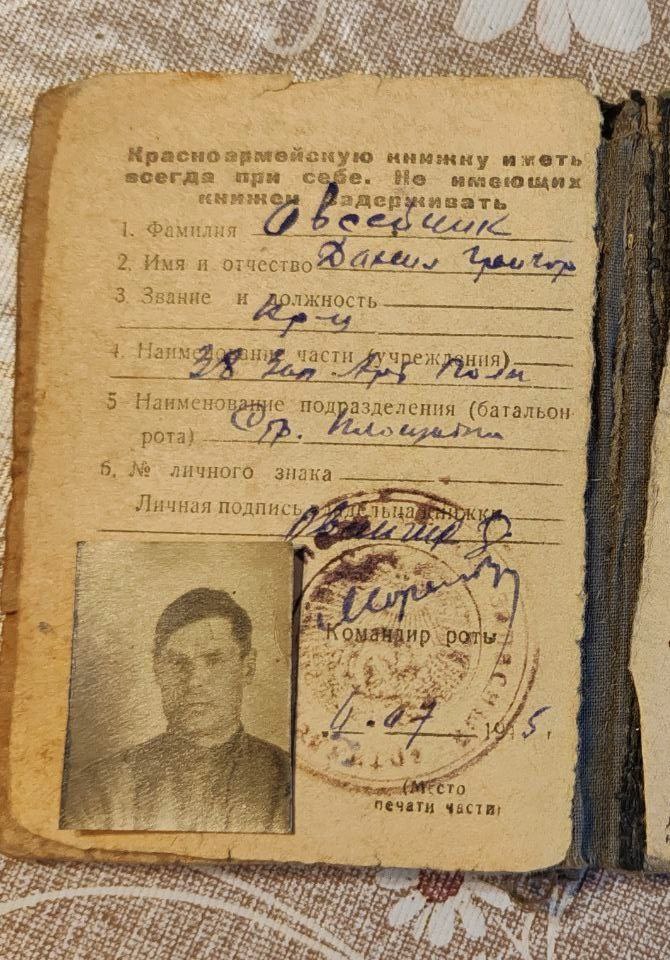 Красноармейскую книжку иметь
всегда при себе. Не имеющих
книжек задерживать
1. Фамилия Овсейчик
2. Имя и отчество Данил Григор
3. Звание и должность
Кр-ц
4. Наименование части (учреждения)
38 Зап Арт Полк
5 Наименование подразделения (батальон
рота) Стр.
6. № личного знака
Личная подпись владельца книжки
Командир роты
07 1945.
(Место
печати части)